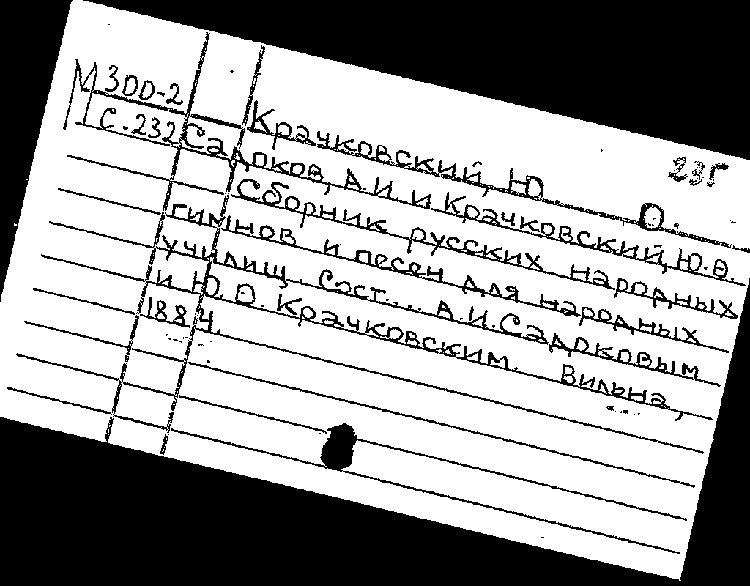 М 300-2
С.232
235
Крачковский, Ю. О.
Садоков, А.И. и Крачковский, Ю.Ѳ.
Сборник русских народных
гимнов и песен для народных
училищ. Сост... А.И.Садоковым
и Ю.Ѳ. Крачковским. Вильна,
1884.